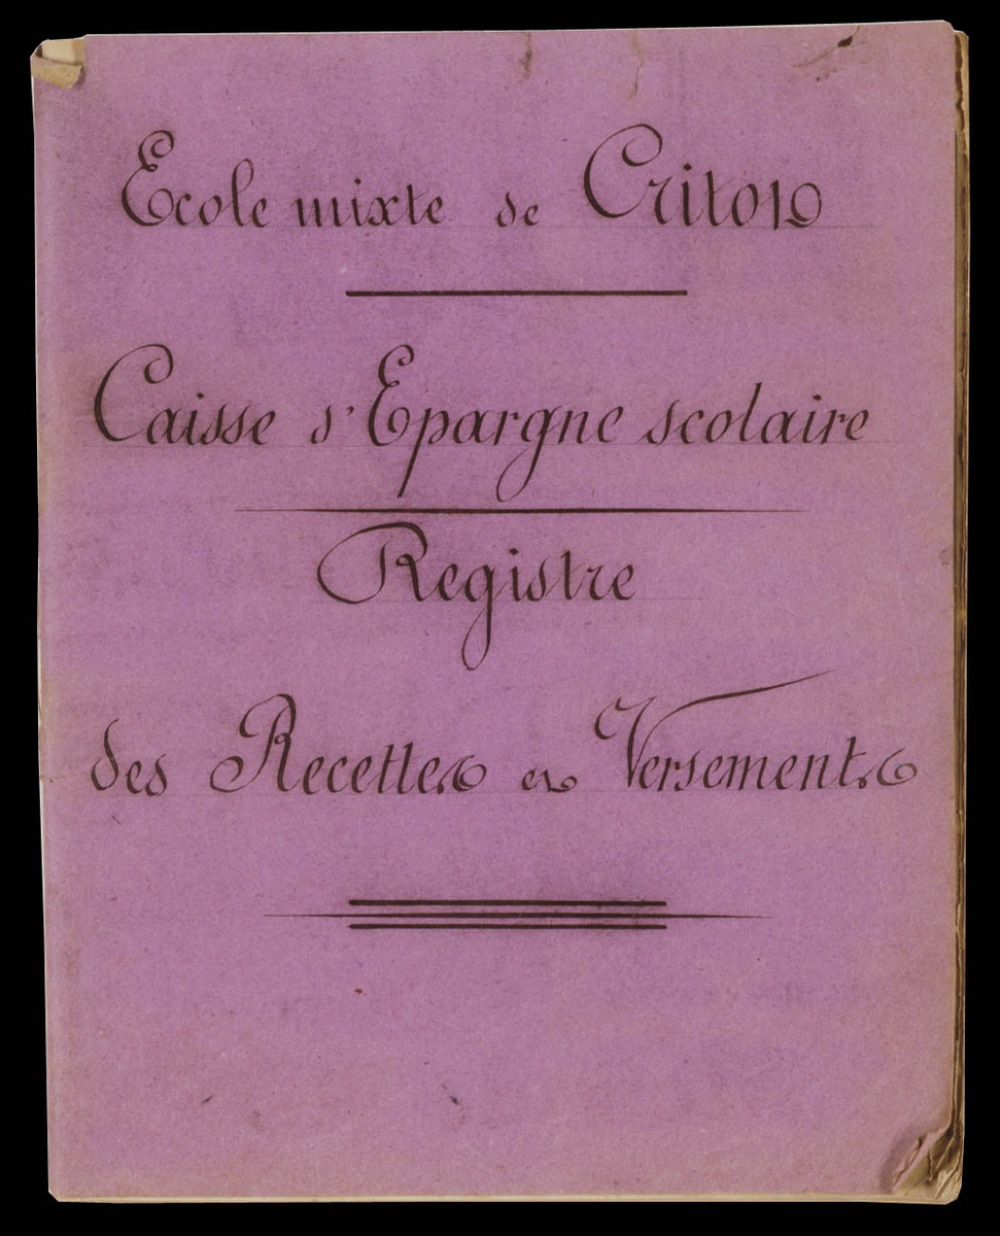 Ecole mixte de Criton
Caisse d'Epargne scolaire
Registre
des Recettes et Versements